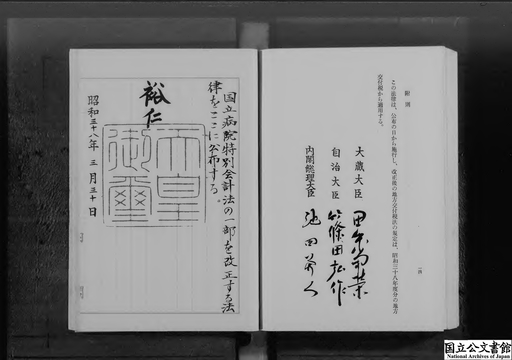 附則
この法律は、公布の日から施行し、改正後の地方交付税法の規定は、昭和三十八年度分の地方
交付税から適用する。
一四
大蔵大臣 田中角榮
自治大臣 篠田弘作
内閣総理大臣 池田勇人
国立病院特別会計法の一部を改正する法
律をここに公布する。
裕仁
天皇
御璽
昭和三十八年三月三十日
国立公文書館
National Archives of Japan